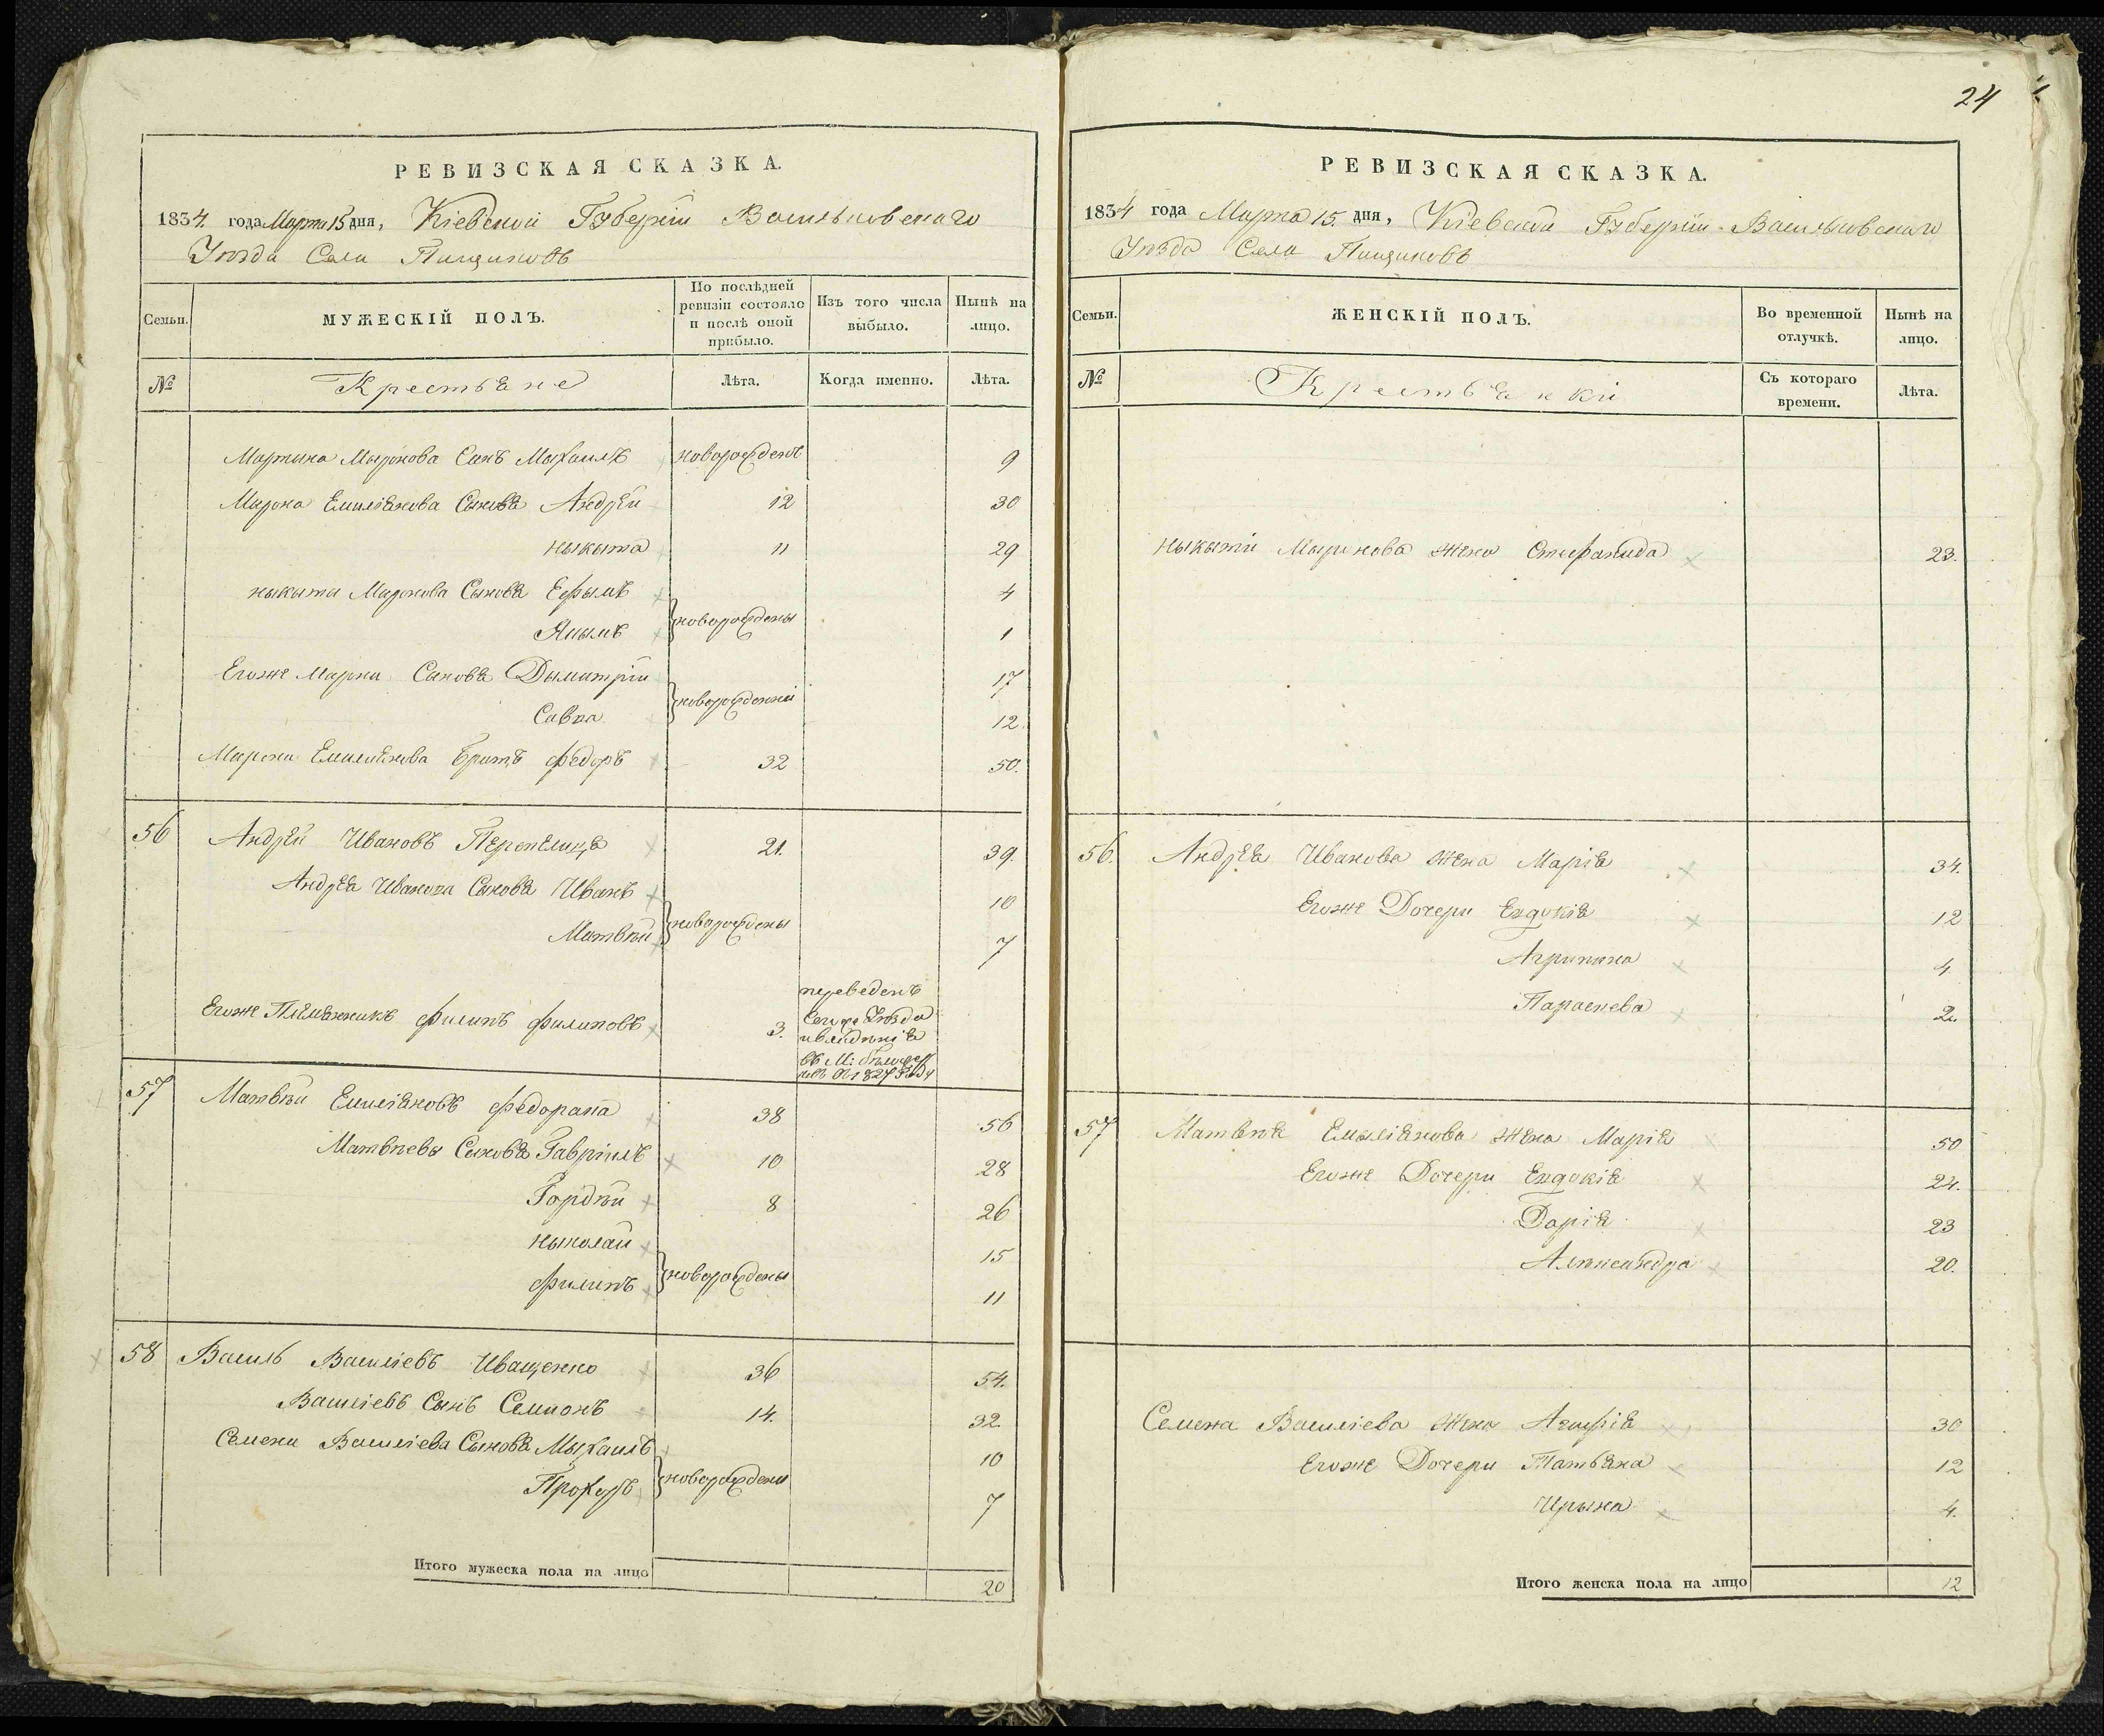 РЕВИЗСКАЯ СКАЗКА.
1834. года Марта 15 дня, Кіевской Губерніи Васильковскаго
Уѣзда Села Пищиковъ
Семьи.
МУЖЕСКІЙ ПОЛЪ.
По послѣдней ревизіи состояло и послѣ оной прибыло.
Изъ того числа выбыло.
Нынѣ на лицо.
№
Крестьяне
Лѣта.
Когда именно.
Лѣта.
Мартина Мыронова Сынъ Мыхаилъ новорожденъ 9
Марона Емиліянова Сыновя Андрей 12 30
Ныкыта 11 29
Ныкыты Маронова Сыновя Ефымъ 4
новорождены
Якымъ 1
Егоже Марки Сыновя Дымитрій 17
новорожденни
Савка 12.
Емиліянова братъ Федоръ 32 50.
56 Андрей Ивановъ Перепелица 21. 39.
Андрея Иванова Сыновя Иванъ 10
новорождены
Матвѣй 7
Егоже Племянникъ Филипъ Филиповъ 3.
переведенъ
Сегоже Уѣзда
въ М:
1827 году
57 Матвѣй Емиліяновъ Федорака 38 56
Матвѣевы Сыновя Гавріилъ 10 28
Гордѣй 8 26
Ныколай 15
новорождены
Филипъ 11
58 Василь Василіевъ Иващенко 36 54.
Василіевъ Сынъ Семионъ 14. 32
Семена Василіева Сыновя Мыхаилъ 10
новорождены
Прохоръ 7
Итого мужеска пола на лицо 20
24
РЕВИЗСКАЯ СКАЗКА.
1834 года Марта 15. дня, Кіевской Губерніи Васильковскаго
Уѣзда Села Пищиковъ
Семьи.
ЖЕНСКІЙ ПОЛЪ.
Во временной отлучкѣ.
Нынѣ на лицо.
№
Крестьянки
Съ котораго времени.
Лѣта.
Ныкыты Маринова жена Стефанида 23.
56. Андрея Иванова жена Марія 34.
Егоже Дочери Евдокія 12
Агрипина 4
Параскева 2.
57 Матвѣя Емыліянова жена Марія 50
Егоже Дочери Евдокія 24.
Дарія 23
Александра 20.
Семена Василіева жена Агафія 30
Егоже Дочери Татьяна 12
Ирына 4.
Итого женска пола на лицо 12